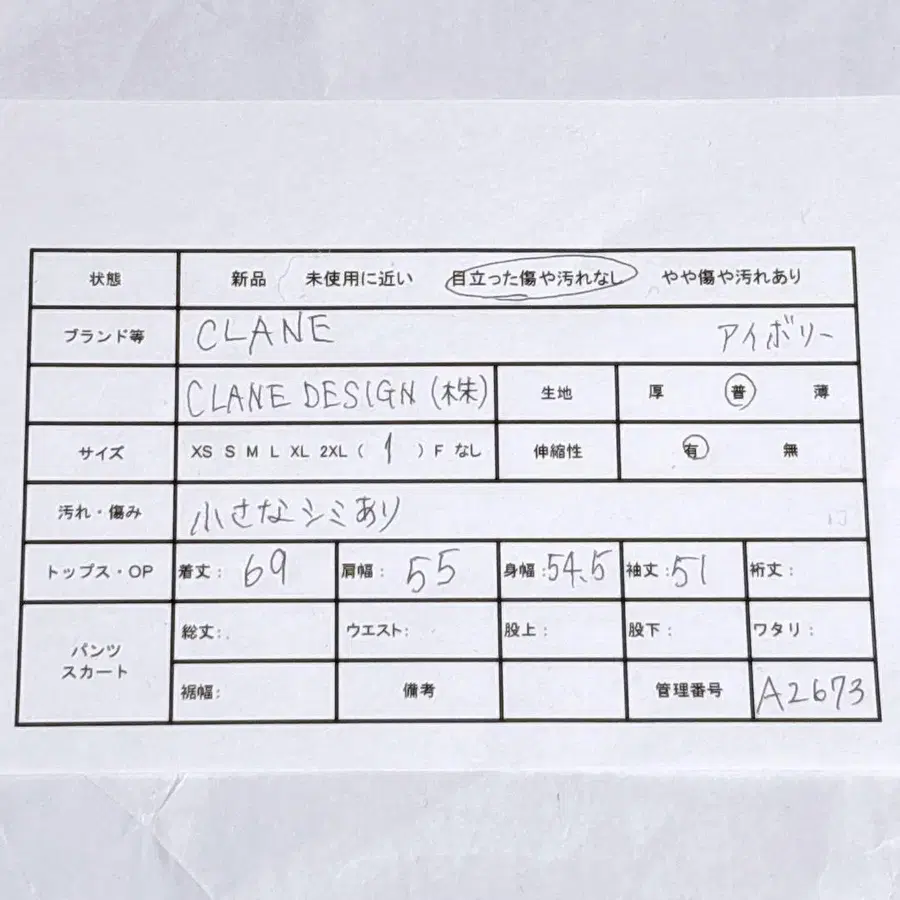 状態 新品 未使用に近い 目立った傷や汚れなし やや傷や汚れあり
ブランド等 CLANE アイボリー
CLANE DESIGN (株) 生地 厚 普 薄
サイズ XS S M L XL 2XL ( 1 ) F なし 伸縮性 有 無
汚れ・傷み 小さなシミあり
トップス・OP 着丈: 69 肩幅: 55 身幅: 54.5 袖丈: 51 裄丈:
パンツ
スカート
総丈: ウエスト: 股上: 股下: ワタリ:
裾幅: 備考 管理番号 A2673